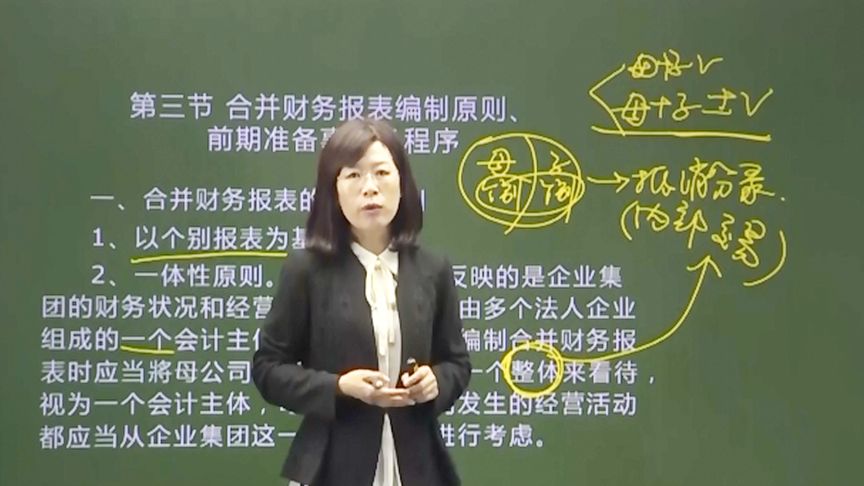 第三节 合并财务报表编制原则、
前期准备 程序
一、合并财务报表的
1、以个别报表为
2、一体性原则。 反映的是企业集
团的财务状况和经营 由多个法人企业
组成的一个会计主体 编制合并财务报
表时应当將母公司 一个整体来看待，
视为一个会计主体， 发生的经营活动
都应当从企业集团这一 进行考虑。
母子√
母+子±√
母 子
个别 个别
→抵消分录.
(内部交易)